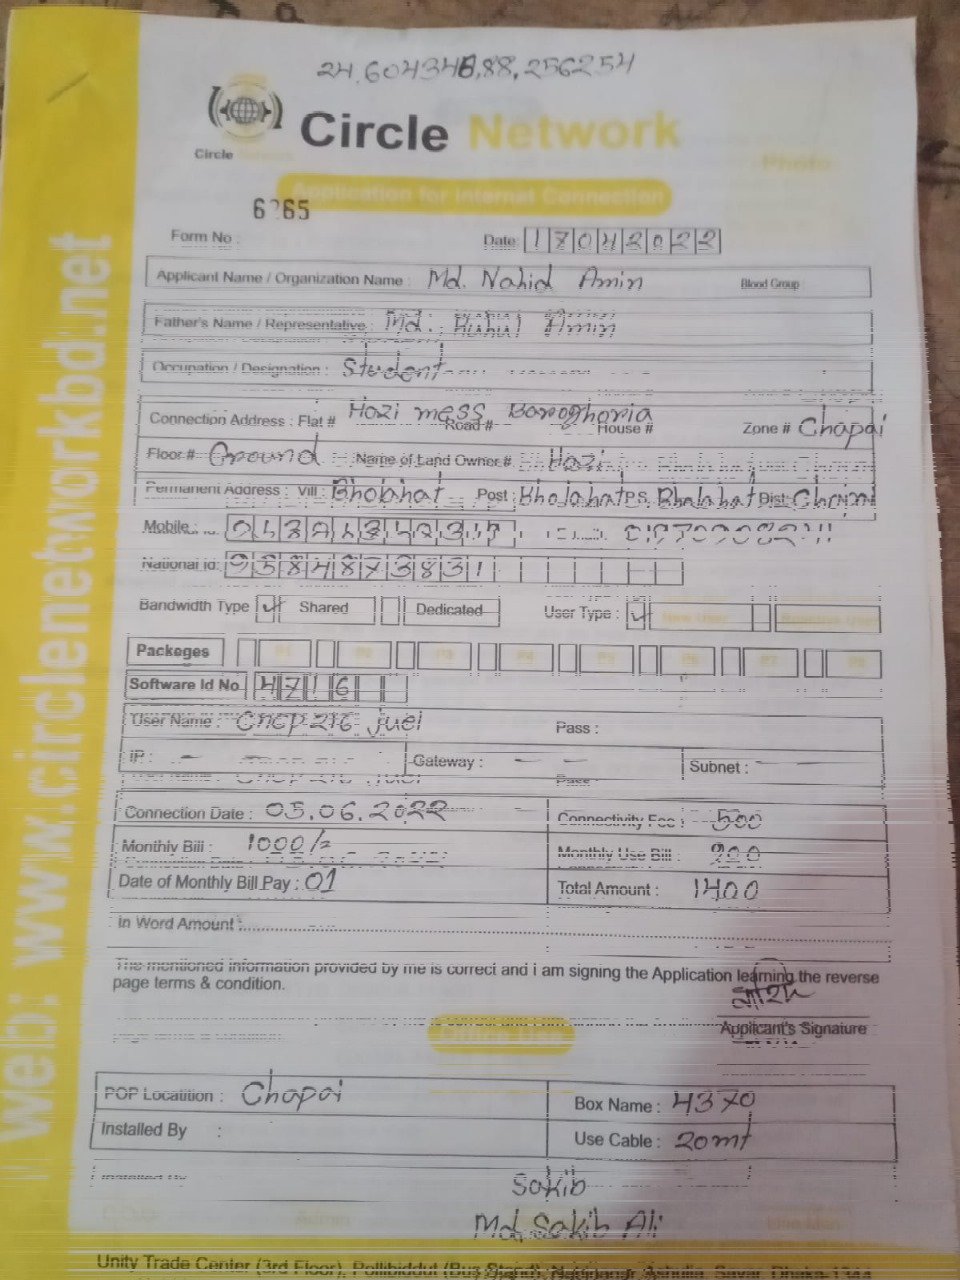 24.604348,88,256254
Circle Network
Circle
Photo
Application for Internet Connection
Form No :
Date: 17042022
Applicant Name / Organization Name : Md. Nahid Amin Blood Group
Father's Name / Representative : Md. Ruhul Amin
Occupation / Designation : Student
Connection Address : Flat # Hazi mess Baroghoria Road # House # Zone # Chapai
Floor # Ground Name of Land Owner # Hazi
Permanent Address : Vill : Bholahat Post : Bholahat P.S. Bholahat Dist:
Mobile
National Id: 9584873831
Bandwidth Type Shared Dedicated User Type : New User
Packeges P1 P2 P3 P4 P5 P6 P7 P8
Software Id No 4716
User Name : Pass :
IP : - Gateway : - - Subnet :
Connection Date : 05.06.2022 Connectivity Fee : 500
Monthly Bill : 1000/= Monthly Use Bill : 900
Date of Monthly Bill Pay : 01 Total Amount : 1400
In Word Amount :
The mentioned information provided by me is correct and I am signing the Application learning the reverse
page terms & condition.
Applicant's Signature
POP Locatition : Chapai Box Name : 4370
Installed By : Use Cable : 20mt
Sakib
Md. Sakib Ali
Unity Trade Center (3rd Floor), Pollibiddut (Bus Stand),
web: www.circlenetworkbd.net